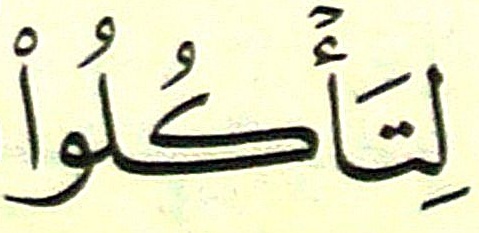 لِتَأۡكُلُواْ